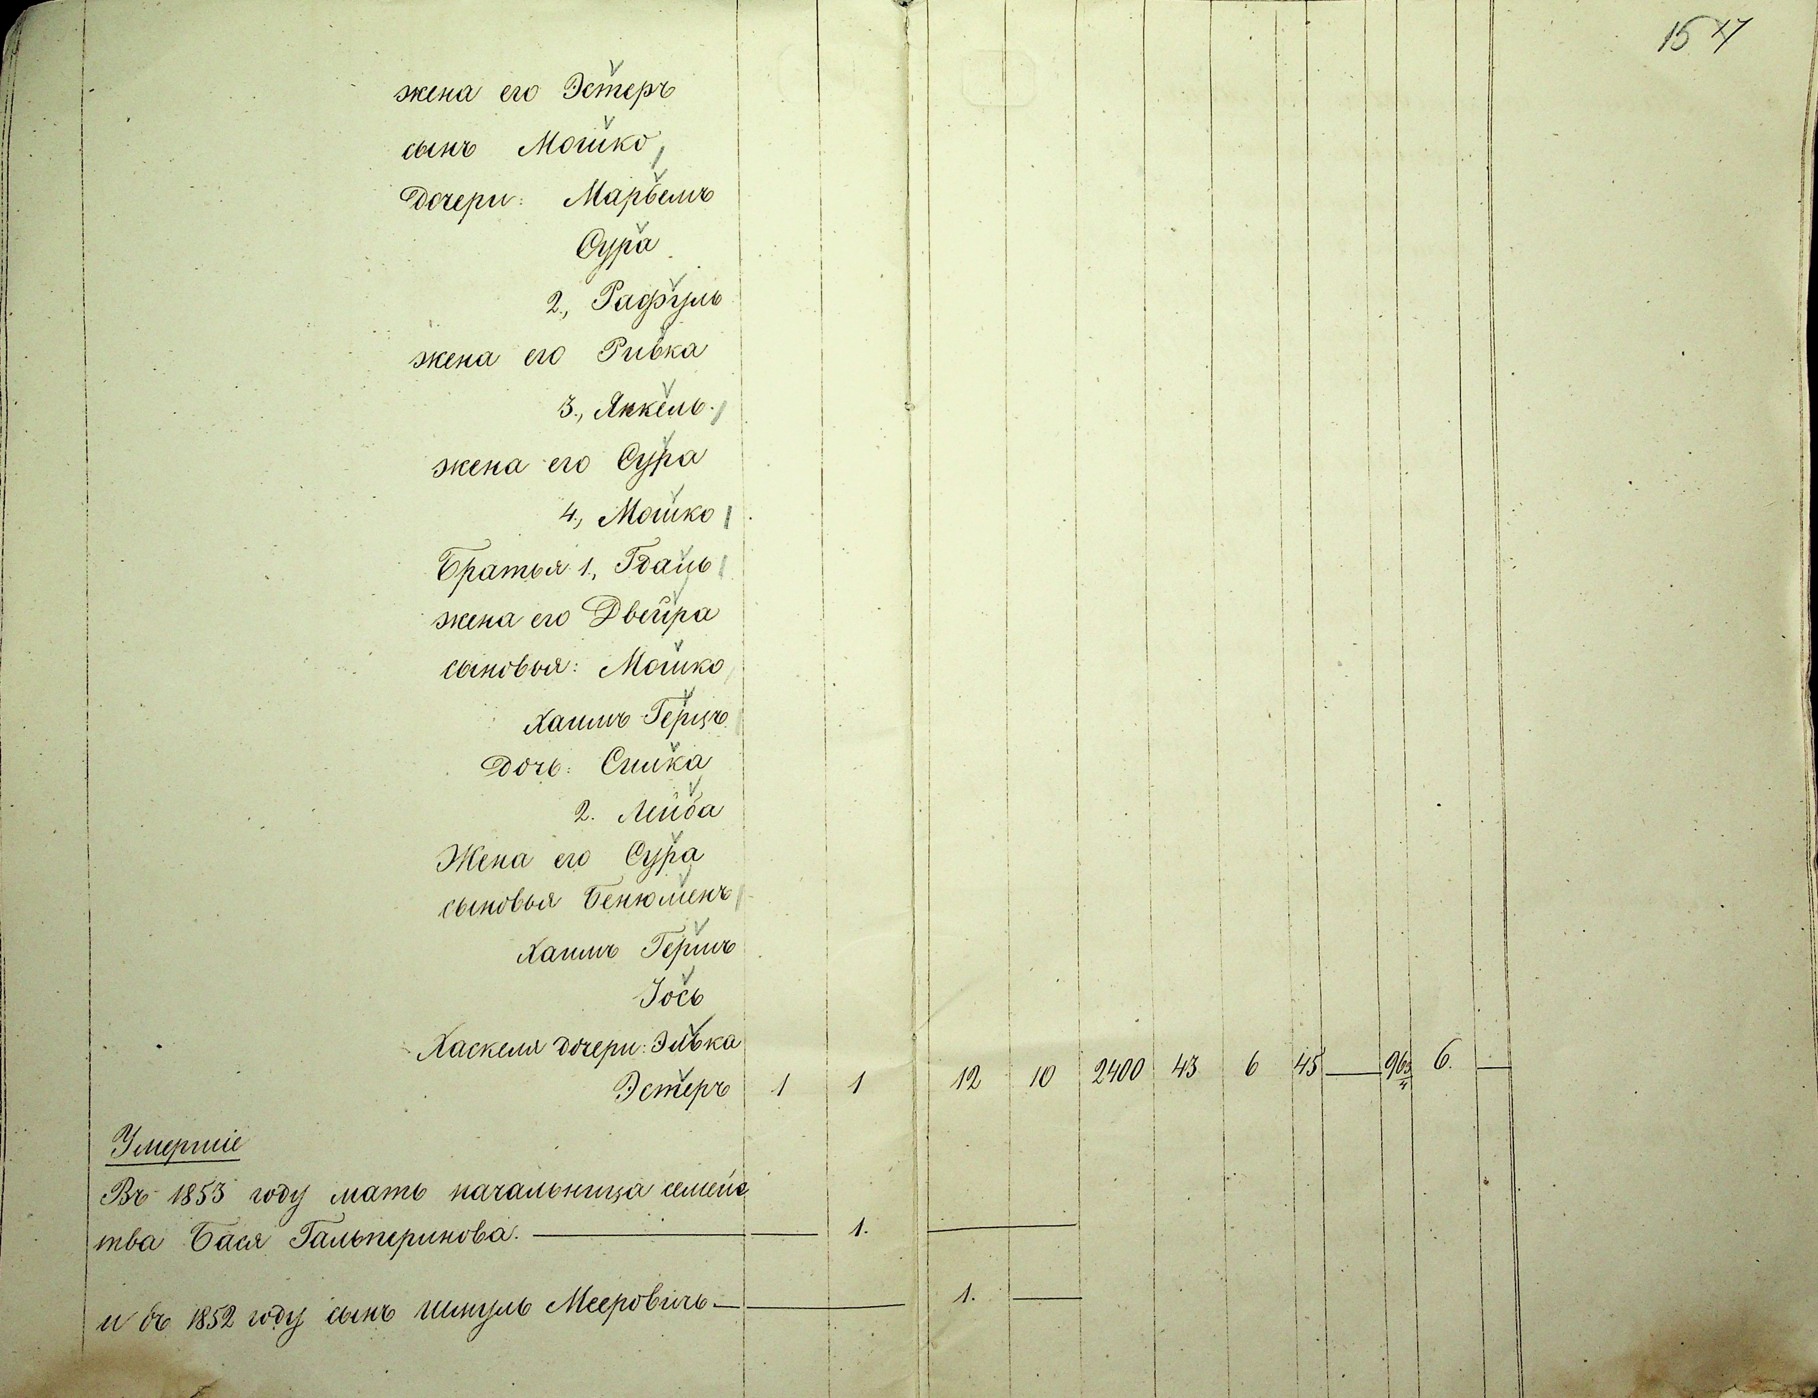 15
жена его Эстеръ
сынъ Мошко
Дочери: Марьемъ
Сура
2., Рафуль
жена его Ривка
3., Янкель.
жена его Сура
4., Мошко
Братья 1., Гдаль
жена его Двейра
сыновья: Мошко
Хаимъ Герцъ
Дочь: Симка
2. Лейба
Жена его Сура
сыновья Бенюменъ
Хаимъ Гершъ
Іось
Хаскеля дочери: Элька
Эстеръ 1 1 12 10 2400 43 6 45 — 96 3/4 6. —
Умершіе
Въ 1853 году мать начальница семейс
тва Бася Гальперинова. — 1. —
и въ 1852 году сынъ Шмуль Мееровичъ — 1. —